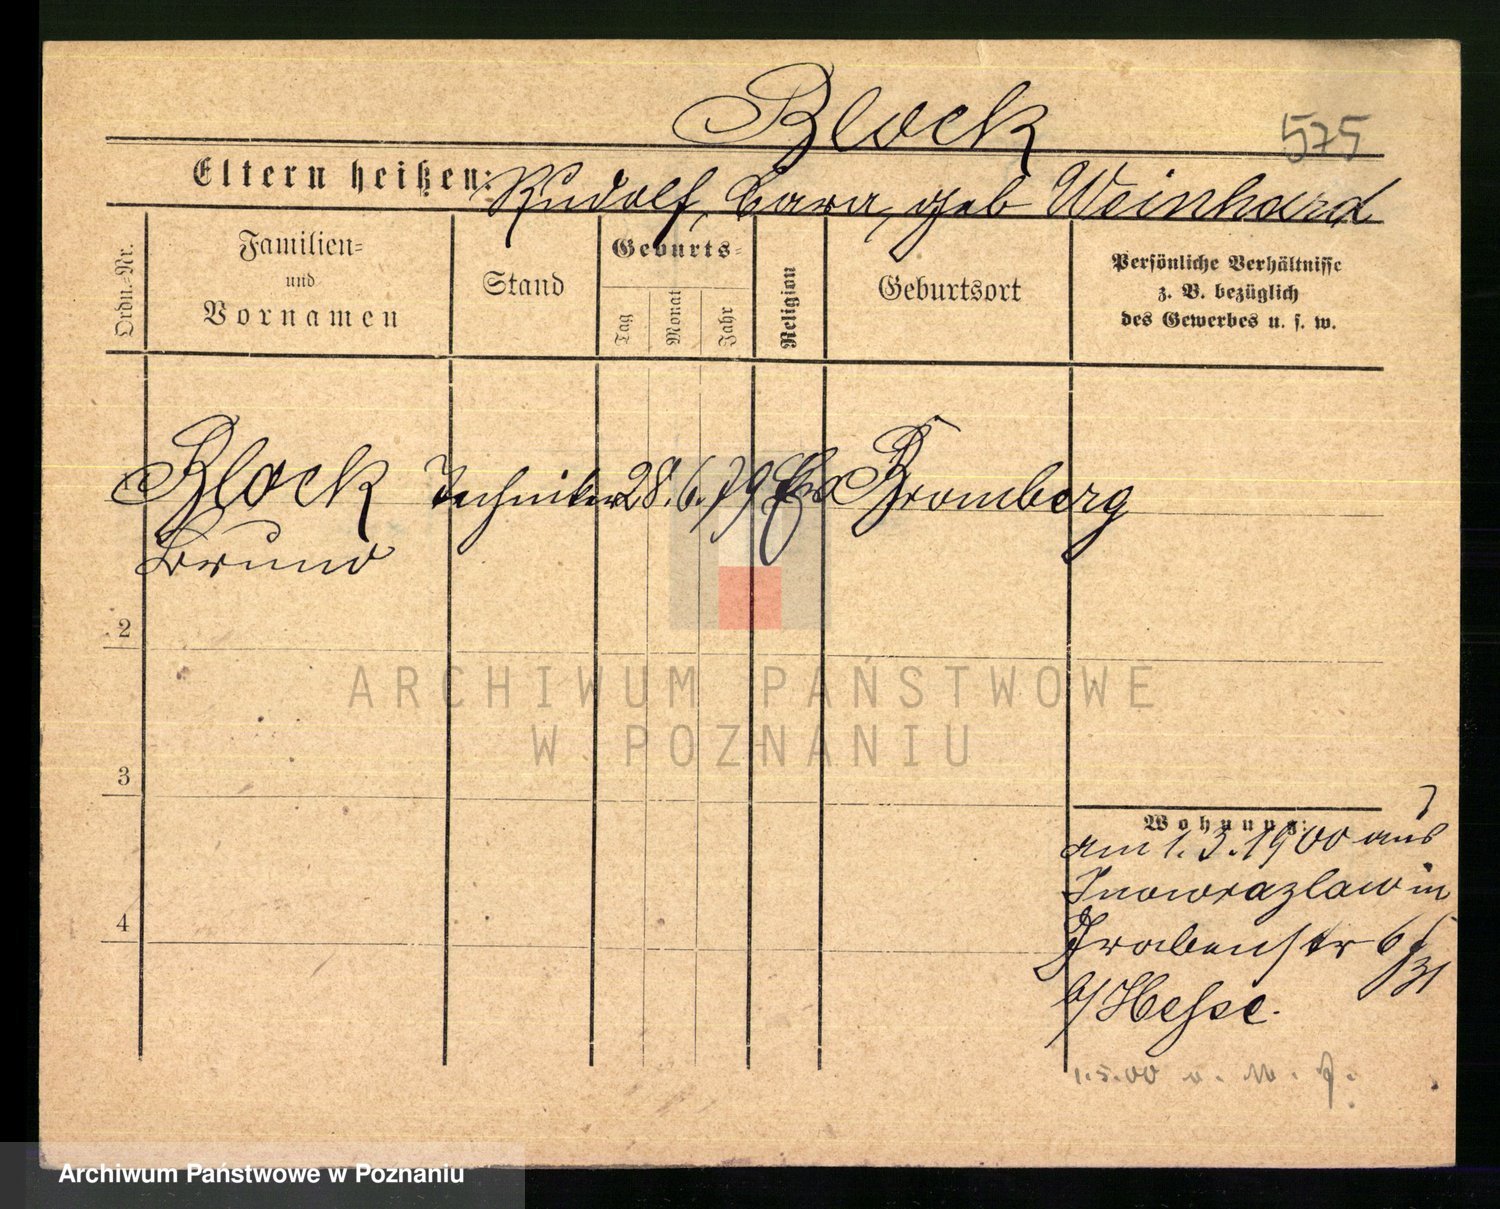 Block
575
Eltern heißen: Rudolf, Clara, geb Weinhard
Ordn.-Nr.
Familien-
und
Vornamen
Stand
Geburts-
Tag
Monat
Jahr
Religion
Geburtsort
Persönliche Verhältnisse
z. B. bezüglich
des Gewerbes u. s. w.
Block Techniker 28. 6. 79 Bromberg
Bruno
2
3
4
ARCHIWUM PAŃSTWOWE
W POZNANIU
Wohnung:
am 1. 3. 1900 aus
Inowrazlaw in
Grabenstr 6
b/ Hesse.
1.5.00
Archiwum Państwowe w Poznaniu